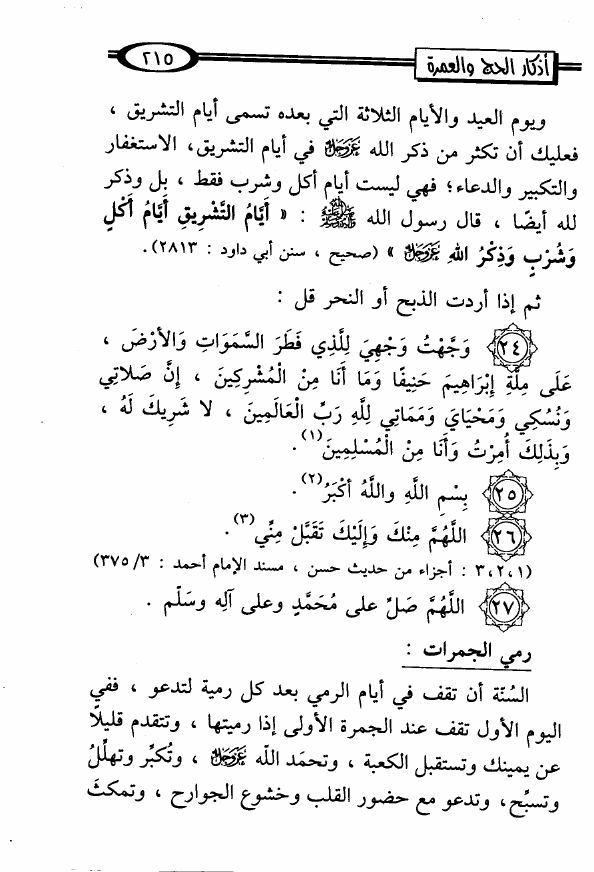 أذكار الحج والعمرة
٢١٥
ويوم العيد والأيام الثلاثة التي بعده تسمى أيام التشريق ،
فعليك أن تكثر من ذكر الله عَزَّوَجَلَّ في أيام التشريق، الاستغفار
والتكبير والدعاء؛ فهي ليست أيام أكل وشرب فقط ، بل وذكر
لله أيضًا ، قال رسول الله ﷺ : « أَيَّامُ التَّشْرِيقِ أَيَّامُ أَكْلٍ
وَشُرْبٍ وَذِكْرُ اللهِ عَزَّوَجَلَّ » (صحيح ، سنن أبي داود : ٢٨١٣).
ثم إذا أردت الذبح أو النحر قل :
٢٤ وَجَّهْتُ وَجْهِيَ لِلَّذِي فَطَرَ السَّمَوَاتِ وَالأَرْضَ ،
عَلَى مِلَّةِ إِبْرَاهِيمَ حَنِيفًا وَمَا أَنَا مِنَ الْمُشْرِكِينَ ، إِنَّ صَلاتِي
وَنُسُكِي وَمَحْيَايَ وَمَمَاتِي لِلَّهِ رَبِّ الْعَالَمِينَ ، لا شَرِيكَ لَهُ ،
وَبِذَلِكَ أُمِرْتُ وَأَنَا مِنَ الْمُسْلِمِينَ(١).
٢٥ بِسْمِ اللَّهِ واللَّهُ أَكْبَرُ(٢).
٢٦ اللَّهُمَّ مِنْكَ وَإِلَيْكَ تَقَبَّلْ مِنِّي(٣).
(٣،٢،١ : أجزاء من حديث حسن ، مسند الإمام أحمد : ٣٧٥/٣)
٢٧ اللَّهُمَّ صَلِّ على مُحَمَّدٍ وعلى آلِه وسَلّم .
رمي الجمرات :
السُنّة أن تقف في أيام الرمي بعد كل رمية لتدعو ، ففي
اليوم الأول تقف عند الجمرة الأولى إذا رميتها ، وتتقدم قليلًا
عن يمينك وتستقبل الكعبة ، وتحمَد اللّه عَزَّوَجَلَّ ، وتُكبِّر وتهلِّلُ
وتسبِّح، وتدعو مع حضور القلب وخشوع الجوارح ، وتمكثَ